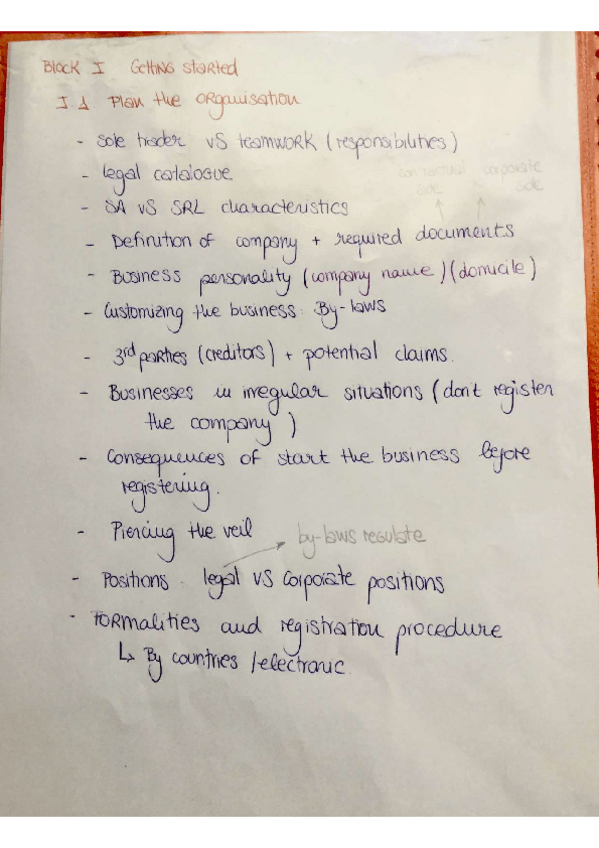 Block I Getting started
I.1 Plan the organisation
- Sole trader vs teamwork (responsibilities)
- legal catalogue
contractual side corporate side
- SA vs SRL characteristics
- Definition of company + required documents
- Business personality (company name) (domicile)
- Customizing the business: By-laws
- 3rd parties (creditors) + potential claims.
- Businesses in irregular situations (don't register
the company)
- Consequences of start the business before
registering.
- Piercing the veil
by-laws regulate
- Positions: legal vs corporate positions
- Formalities and registration procedure
↳ By countries / electronic.